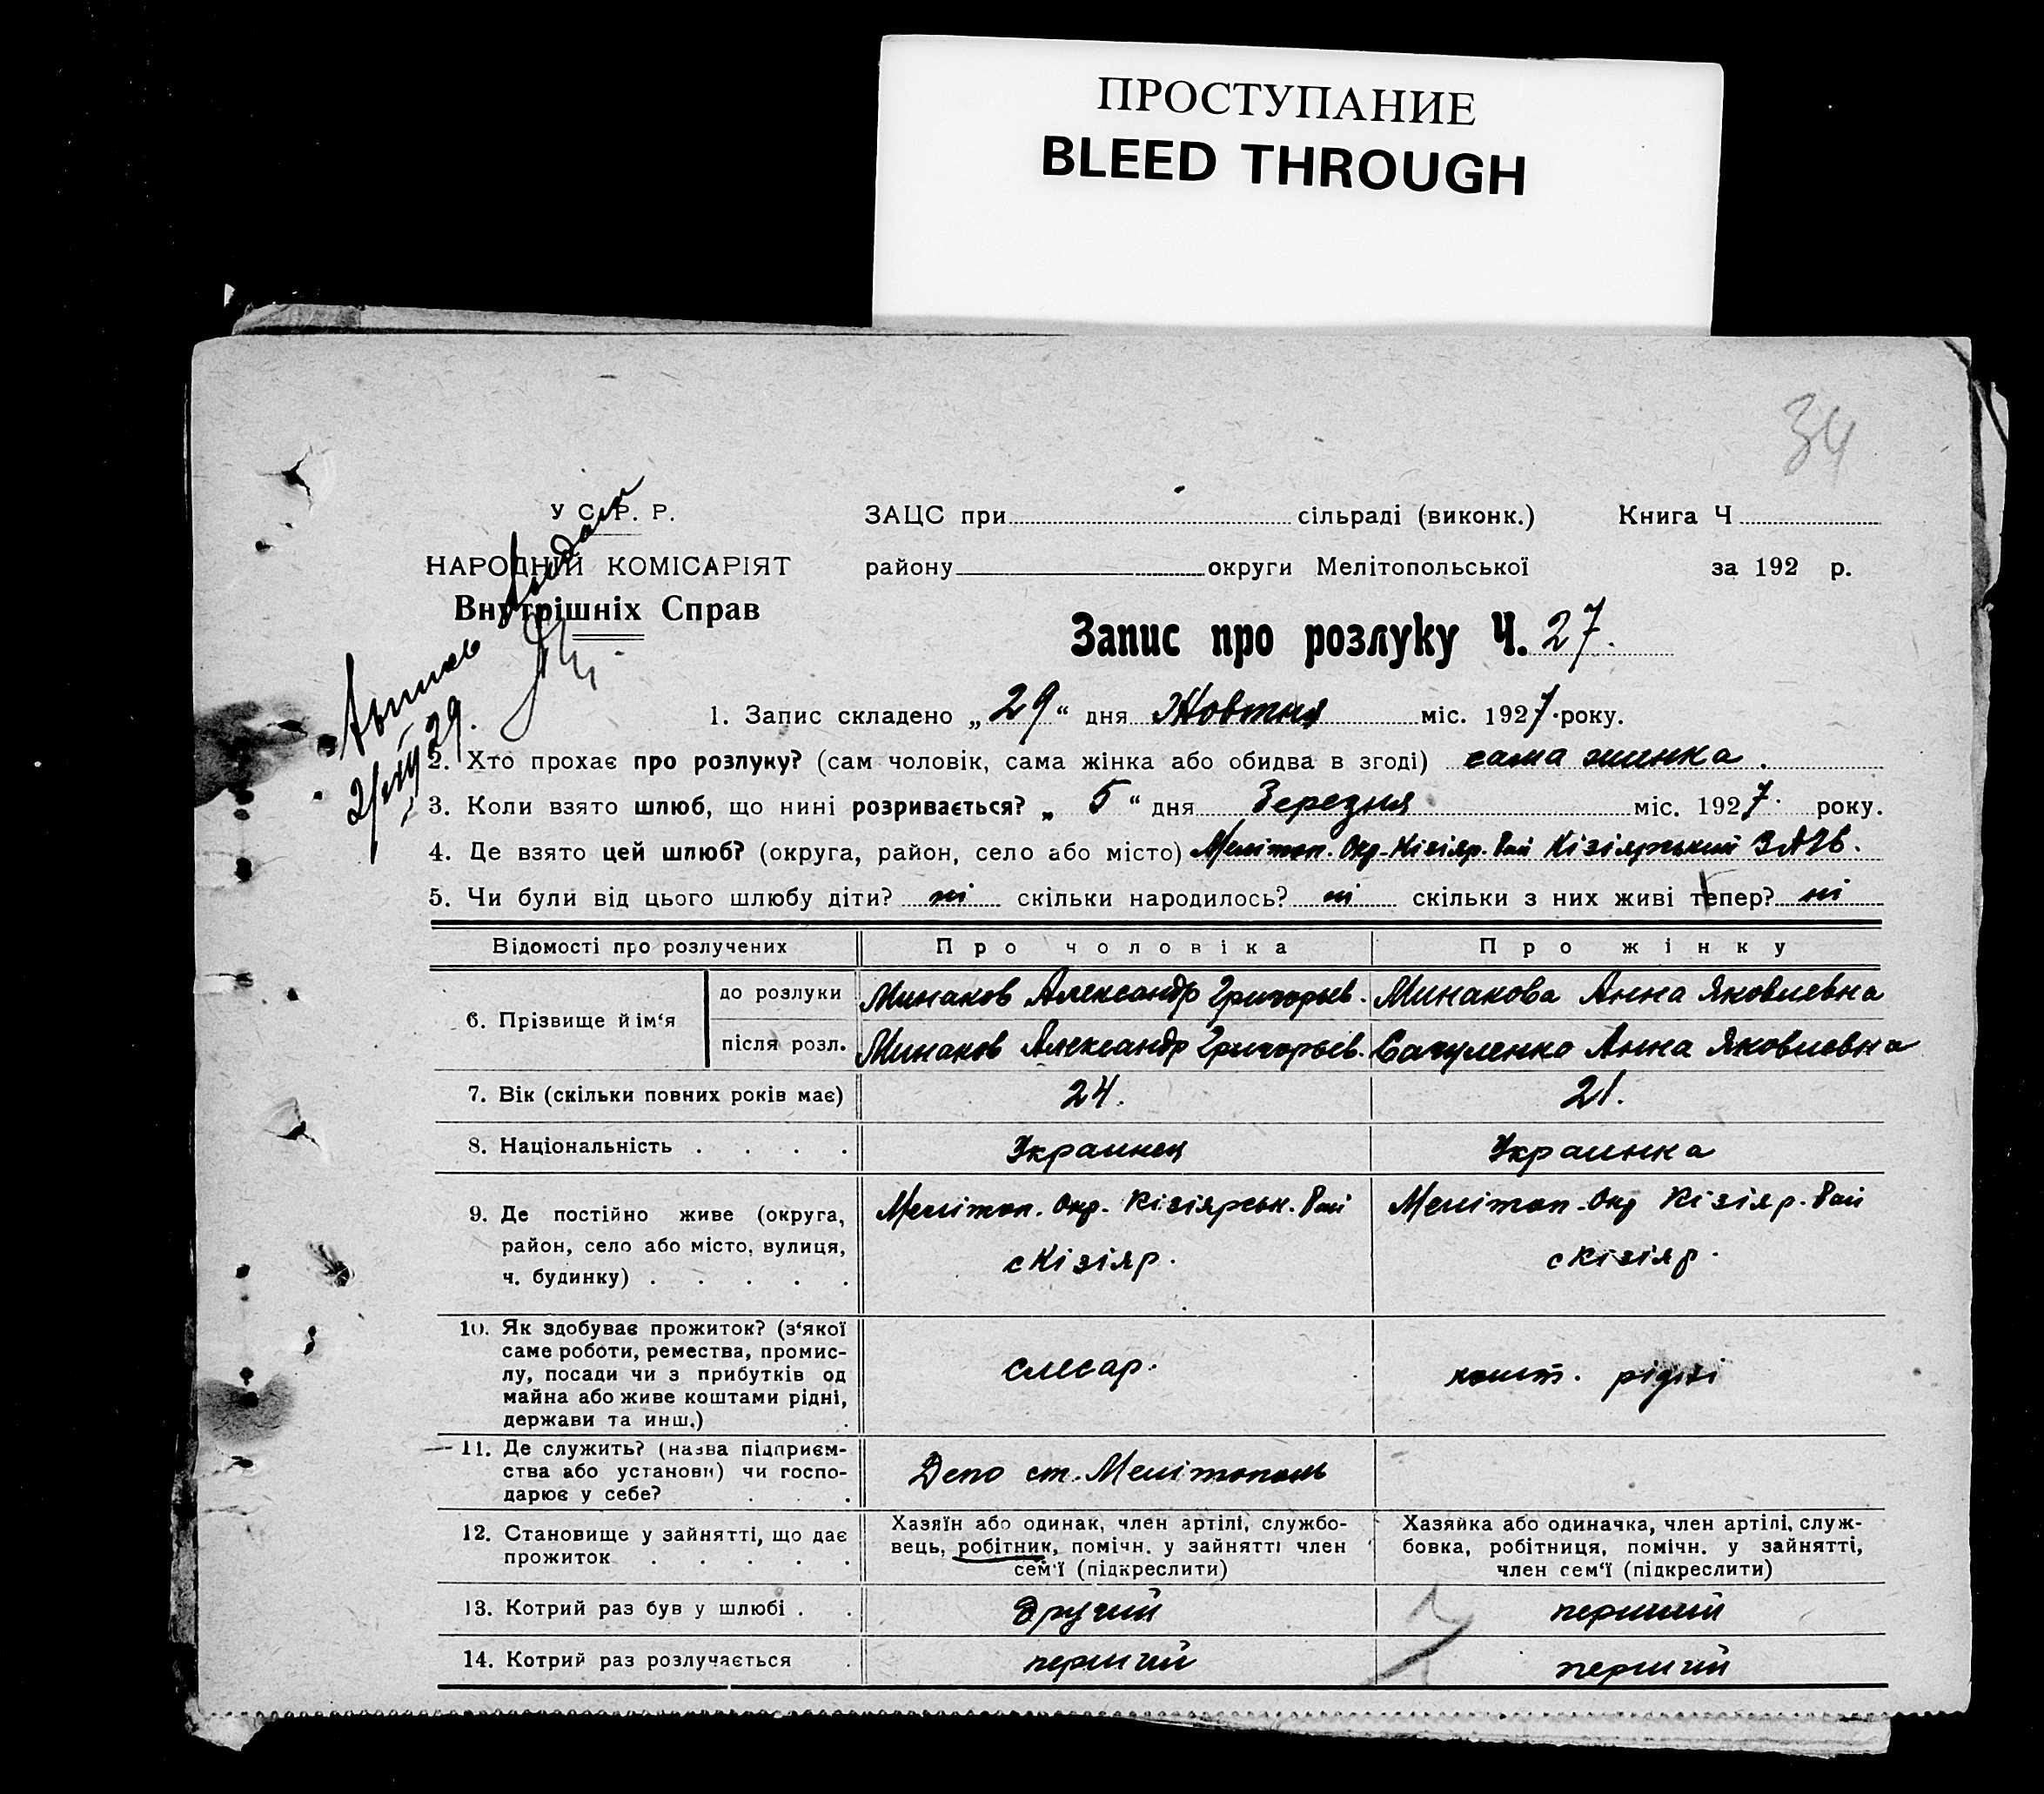 ПРОСТУПАНИЕ
BLEED THROUGH
34
У С. Р. Р.
НАРОДНІЙ КОМІСАРІЯТ
Внутрішніх Справ
ЗАЦС при сільраді (виконк.) Книга Ч
району округи Мелітопольської за 192 р.
Запис про розлуку Ч. 27.
1. Запис складено „29“ дня Жовтня міс. 1927 року.
2. Хто прохає про розлуку? (сам чоловік, сама жінка або обидва в згоді) сама жинка.
3. Коли взято шлюб, що нині розривається? „5“ дня Березня міс. 1927 року.
4. Де взято цей шлюб? (округа, район, село або місто) Меліт͏оп. Окр. Кізіяр. Рай Кізіярський
5. Чи були від цього шлюбу діти? ні скільки народилось? ні скільки з них живі тепер? ні
Відомості про розлучених
Про чоловіка
Про жінку
6. Прізвище й ім‘я
до розлуки
Минаков Александр Григорьев.
Минакова Анна Яковлевна
після розл.
Минаков Александр Григорьев.
Анна Яковлевна
7. Вік (скільки повних років має)
24.
21.
8. Національність . . . .
Украинец
Украинка
9. Де постійно живе (округа,
район, село або місто, вулиця,
ч. будинку) . . . . .
Меліт͏оп. Окр. Кізіярськ. Рай
с Кізіяр.
Меліт͏оп. Окр Кізіяр. Рай
с Кізіяр.
10. Як здобуває прожиток? (з‘якої
саме роботи, ремества, промис-
лу, посади чи з прибутків од
майна або живе коштами рідні,
держави та инш.) .
слесар.
кошт. рідні
11. Де служить? (назва підприєм-
ства або установи) чи госпо-
дарює у себе? . . .
Депо ст. Мелітополь
12. Становище у зайнятті, що дає
прожиток . . . . .
Хазяїн або одинак, член артілі, службо-
вець, робітник, помічн. у зайнятті член
сем‘ї (підкреслити)
Хазяйка або одиначка, член артілі, служ-
бовка, робітниця, помічн. у зайнятті,
член сем‘ї (підкреслити)
13. Котрий раз був у шлюбі . .
другий
перший
14. Котрий раз розлучається .
перший
перший